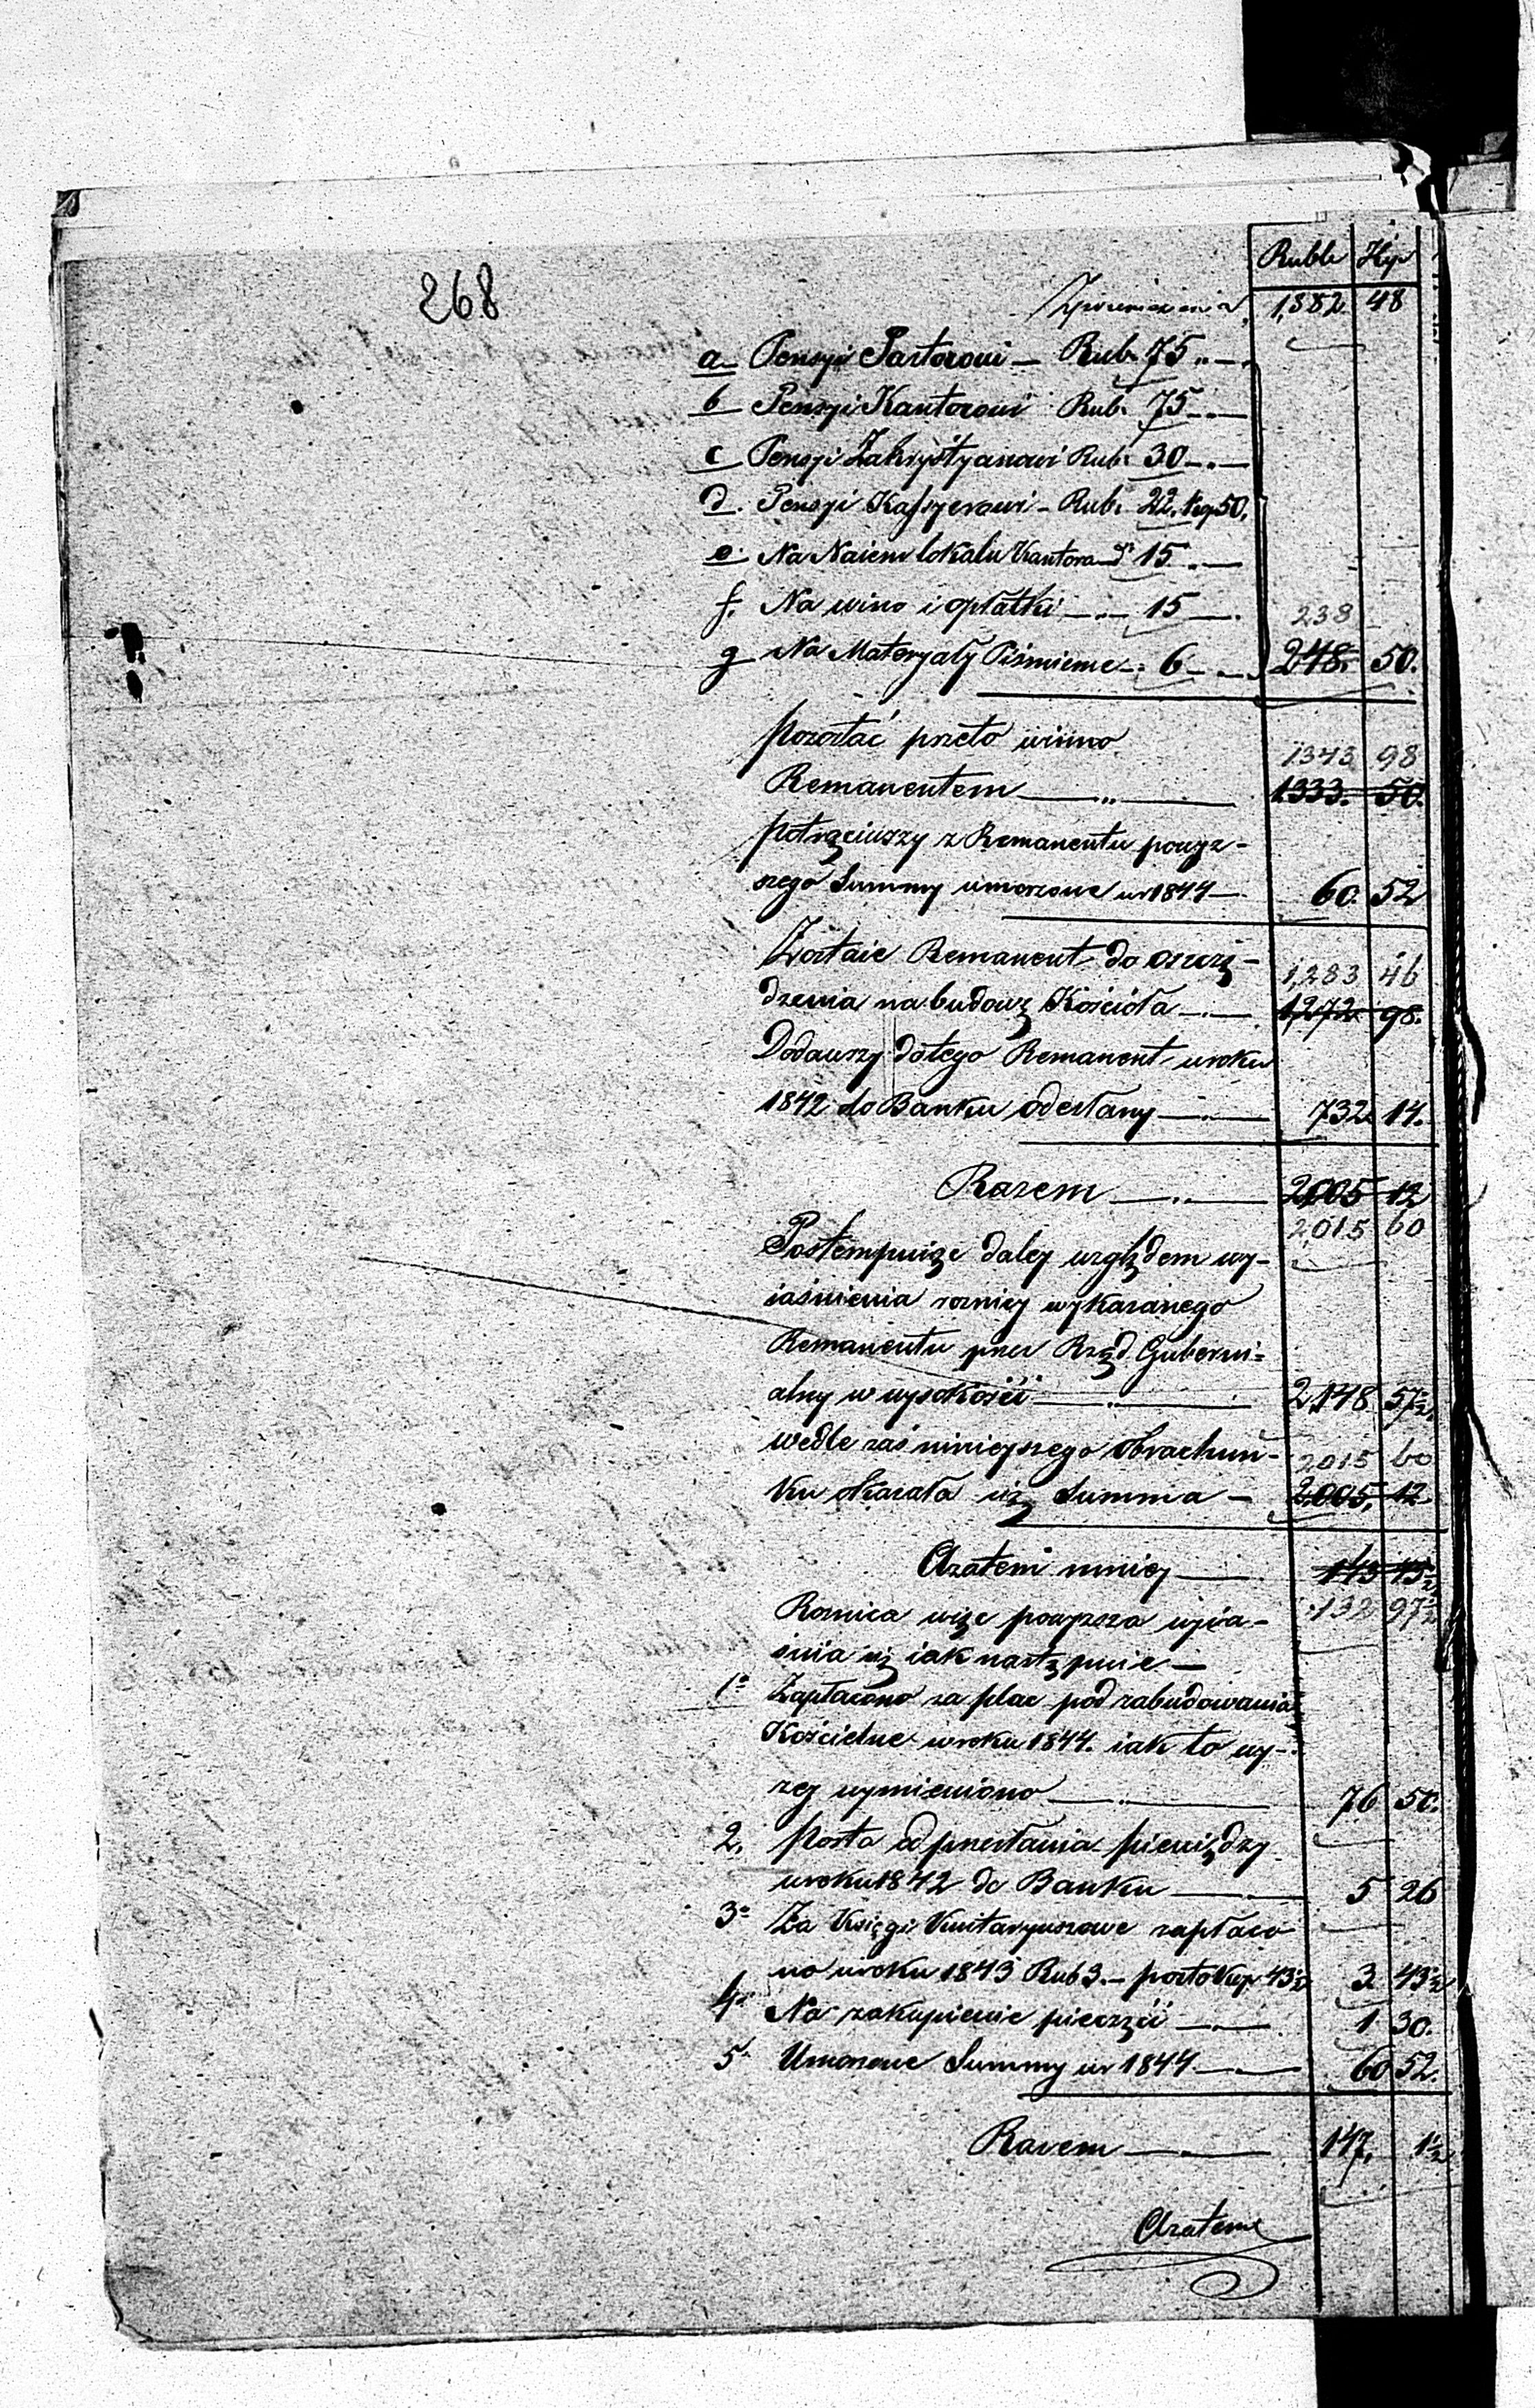 268
Ruble Kop
Zprzeniesienia 1,582. 48
a Pensyi Pastorowi — Rub. 75 „ —
b Pensyi Kantorowi Rub. 75 „ —
c Pensyi Zakrystyanowi Rub. 30 — „ —
d. Pensyi Kassyerowi — Rub. 22. Kop 50.
e. Na Naiem lokalu Kantora — 15 „ —
f. Na wino i opłatki — „ — 15 —
238
g Na Materyały Piśmienne — 6 — „ — 248. 50.
Pozostać przeto winno
1343 98
Remanentem — „ — 1333. 50.
Potrąciwszy z Remanentu powyż-
szego Summy umorzone w r 1844 — 60. 52
Zostaie Remanent do oszczę-
1,283 46
dzenia na budowę Kościoła — „ — 1,272. 98.
Dodawszy do tego Remanent w roku
1842 do Banku odesłany — „ — 732 14.
Razem — „ — 2,005 12
2,015 60
Postempuiąc daley względem wy-
iaśnienia rożnicy wykazanego
Remanentu przez Rząd Guberni=
alny w wysokości — „ — 2,148 57½
wedle zaś ninieyszego Obrachun-
2015 60
ku okazała się Summa — 2,005. 12
Azatem mniey — 143 45½
132 97½
Roznica więc powyższa wyia-
śnia się iak następuie —
1° Zapłacono za plac pod zabudowania
Kościelne w roku 1844. iak to wy-
zey wymieniono — „ — 76 50.
2. Porto od przesłania pieniędzy
w roku 1842 do Banku — „ — 5 26
3° Za Księgi Kwitaryuszowe zapłaco
no w roku 1843 Rub 3. — porto Kop 43½ 3 43½
4° Na zakupienie pieczęci — „ — 1 30.
5° Umorzone Summy w r 1844 — „ — 60 52.
Razem — „ — 147. 1½
Azatem